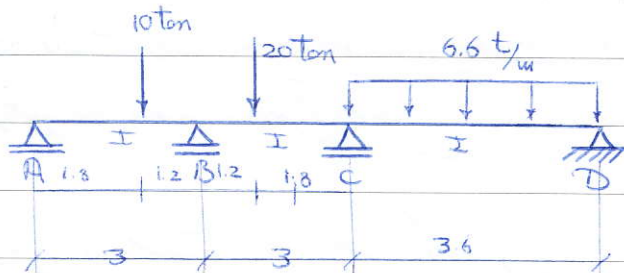 10 ton
20 ton
6.6 t/m
I I I
A 1.8 1.2 B 1.2 1.8 C D
3 3 3.6